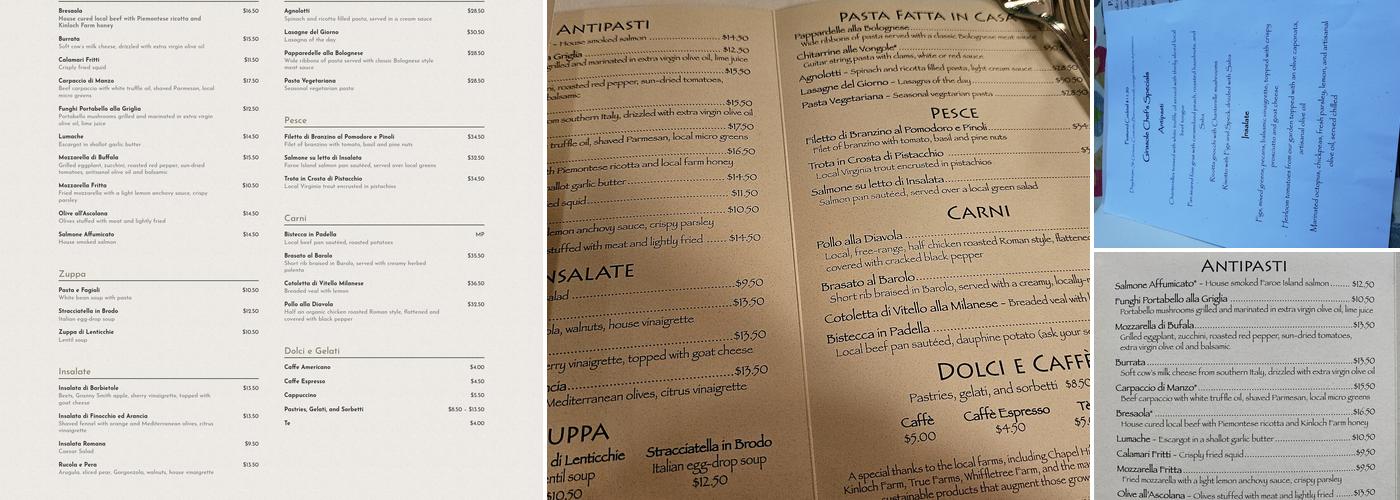 Bresaola $16.50
House cured local beef with Piemontese ricotta and
Kinloch Farm honey
Burrata $15.50
Soft cow's milk cheese, drizzled with extra virgin olive oil
Calamari Fritti $11.50
Crisply fried squid
Carpaccio di Manzo $17.50
Beef carpaccio with white truffle oil, shaved Parmesan, local
micro greens
Funghi Portabello alla Griglia $12.50
Portabello mushrooms grilled and marinated in extra virgin
olive oil, lime juice
Lumache $14.50
Escargot in shallot garlic butter
Mozzarella di Buffala $15.50
Grilled eggplant, zucchini, roasted red pepper, sun-dried
tomatoes, artisanal olive oil and balsamic
Mozzarella Fritta $10.50
Fried mozzarella with a light lemon anchovy sauce, crispy
parsley
Olive all'Ascolana $14.50
Olives stuffed with meat and lightly fried
Salmone Affumicato $14.50
House smoked salmon
Zuppa
Pasta e Fagioli $10.50
White bean soup with pasta
Stracciatella in Brodo $12.50
Italian egg-drop soup
Zuppa di Lenticchie $10.50
Lentil soup
Insalate
Insalata di Barbietole $13.50
Beets, Granny Smith apple, sherry vinaigrette, topped with
goat cheese
Insalata di Finocchio ed Arancia $13.50
Shaved fennel with orange and Mediterranean olives, citrus
vinaigrette
Insalata Romana $9.50
Caesar Salad
Rucola e Pera $13.50
Arugula, sliced pear, Gorgonzola, walnuts, house vinaigrette
Agnolotti $28.50
Spinach and ricotta filled pasta, served in a cream sauce
Lasagne del Giorno $30.50
Lasagna of the day
Pappardelle alla Bolognese $28.50
Wide ribbons of pasta served with classic Bolognese style
meat sauce
Pasta Vegetariana $28.50
Seasonal vegetarian pasta
Pesce
Filetto di Branzino al Pomodoro e Pinoli $34.50
Filet of branzino with tomato, basil and pine nuts
Salmone su letto di Insalata $32.50
Faroe Island salmon pan sautéed, served over local greens
Trota in Crosta di Pistacchio $34.50
Local Virginia trout encrusted in pistachios
Carni
Bistecca in Padella MP
Local beef pan sautéed, roasted potatoes
Brasato al Barolo $35.50
Short rib braised in Barolo, served with creamy herbed
polenta
Cotoletta di Vitello Milanese $36.50
Breaded veal with lemon
Pollo alla Diavola $32.50
Half an organic chicken roasted Roman style, flattened and
covered with black pepper
Dolci e Gelati
Caffe Americano $4.00
Caffe Espresso $4.50
Cappuccino $5.50
Pastries, Gelati, and Sorbetti $8.50 - $13.50
Te $4.00
ANTIPASTI
- House smoked salmon $14.50
a Griglia $12.50
grilled and marinated in extra virgin olive oil, lime juice
$15.50
ni, roasted red pepper, sun-dried tomatoes,
balsamic
$15.50
om southern Italy, drizzled with extra virgin olive oil
$17.50
truffle oil, shaved Parmesan, local micro greens
$16.50
th Piemontese ricotta and local farm honey
shallot garlic butter $14.50
ed squid $11.50
$10.50
lemon anchovy sauce, crispy parsley
stuffed with meat and lightly fried $14.50
NSALATE
alad $9.50
$13.50
ola, walnuts, house vinaigrette
$13.50
erry vinaigrette, topped with goat cheese
ncia $13.50
Mediterranean olives, citrus vinaigrette
UPPA
di Lenticchie
ntil soup
$10.50
Stracciatella in Brodo
Italian egg-drop soup
$12.50
PASTA FATTA IN CASA
Pappardelle alla Bolognese
Wide ribbons of pasta served with a classic Bolognese meat sauce
Chitarrine alle Vongole*
Guitar string pasta with clams, white or red sauce
Agnolotti - Spinach and ricotta filled pasta, light cream sauce $28.50
Lasagne del Giorno - Lasagna of the day $30.50
Pasta Vegetariana - Seasonal vegetarian pasta $28.50
PESCE
Filetto di Branzino al Pomodoro e Pinoli
Filet of branzino with tomato, basil and pine nuts
Trota in Crosta di Pistacchio
Local Virginia trout encrusted in pistachios
Salmone su letto di Insalata
Salmon pan sautéed, served over a local green salad
CARNI
Pollo alla Diavola
Local, free-range, half chicken roasted Roman style, flattened
covered with cracked black pepper
Brasato al Barolo
Short rib braised in Barolo, served with a creamy, locally-
Cotoletta di Vitello alla Milanese - Breaded veal with
Bistecca in Padella
Local beef pan sautéed, dauphine potato (ask your se
DOLCI E CAFFÈ
Pastries, gelati, and sorbetti $8.50
Caffè
$5.00
Caffè Espresso
$4.50
Tè
$5.
A special thanks to the local farms, including Chapel Hi
Kinloch Farm, True Farms, Whiffletree Farm, and the ma
sustainable products that augment those grow
Carnacle Chef's Specials
Antipasti
Ricotta gnocchi with Chanterelle mushrooms
Risotto with Figs and Speck, drizzled with Saba
Insalate
Figs, mixed greens, pecans, balsamic vinaigrette, topped with crispy
prosciutto and goat cheese
Heirloom tomatoes from our garden topped with an olive, caponata,
artisanal olive oil
Marinated octopus, chickpeas, fresh parsley, lemon, and artisanal
olive oil, served chilled
ANTIPASTI
Salmone Affumicato* - House smoked Faroe Island salmon $12.50
Funghi Portabello alla Griglia $10.50
Portabello mushrooms grilled and marinated in extra virgin olive oil, lime juice
Mozzarella di Bufala $13.50
Grilled eggplant, zucchini, roasted red pepper, sun-dried tomatoes,
extra virgin olive oil and balsamic
Burrata $13.50
Soft cow's milk cheese from southern Italy, drizzled with extra virgin olive oil
Carpaccio di Manzo* $15.50
Beef carpaccio with white truffle oil, shaved Parmesan, local micro greens
Bresaola* $16.50
House cured local beef with Piemontese ricotta and Kinloch Farm honey
Lumache - Escargot in a shallot garlic butter $10.50
Calamari Fritti - Crisply fried squid $9.50
Mozzarella Fritta $9.50
Fried mozzarella with a light lemon anchovy sauce, crispy parsley
Olive all'Ascolana - Olives stuffed with meat and lightly fried $13.50